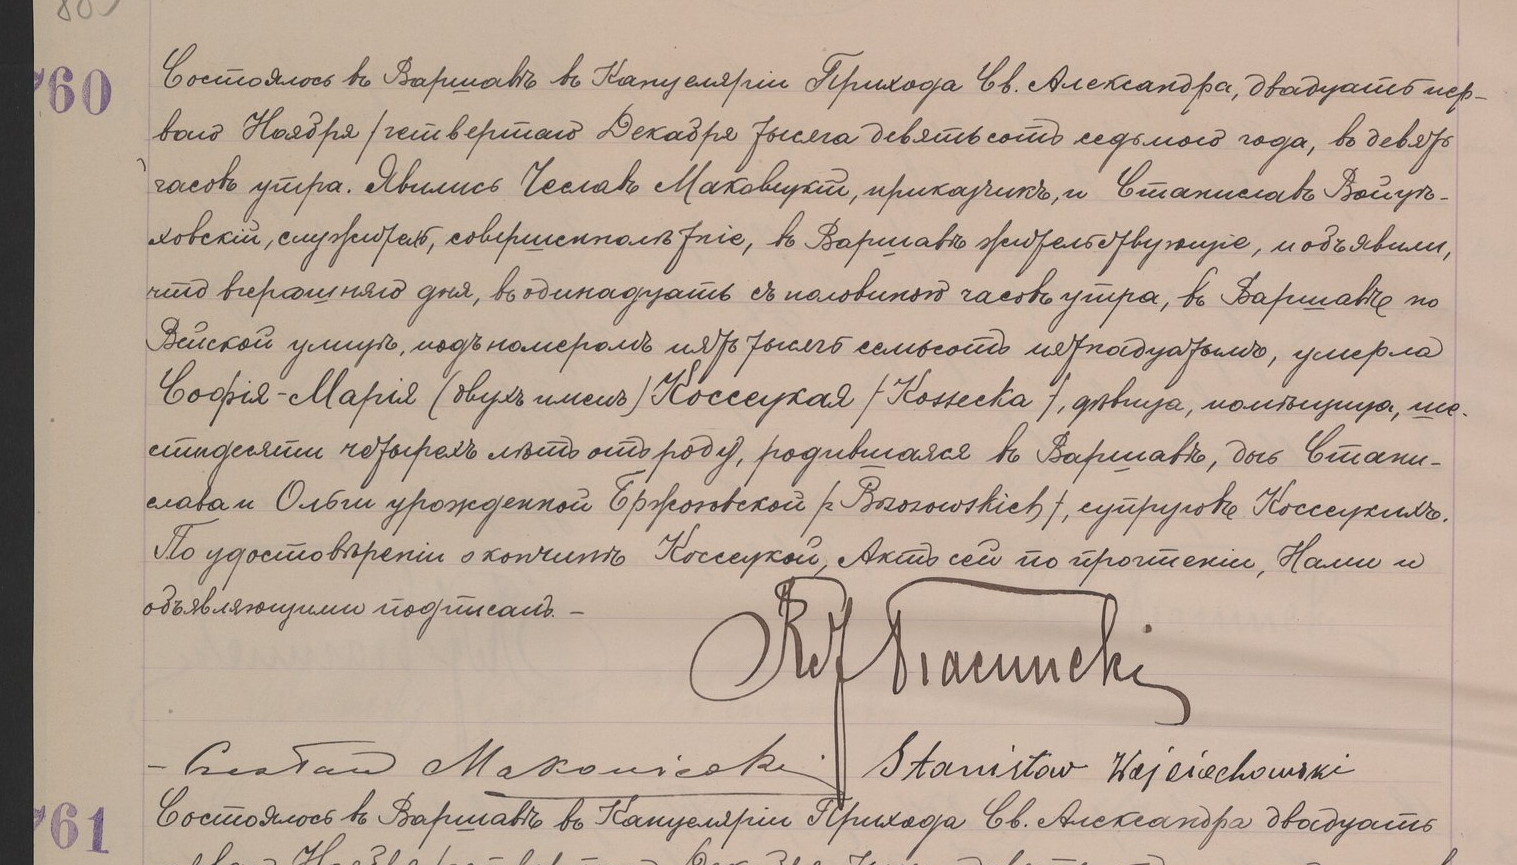 760
Состоялось въ Варшавѣ въ Канцеляріи Прихода Св. Александра, двадцать пер-
ваго Ноября / четвертаго Декабря тысяча девятьсотъ седьмого года, въ девять
часовъ утра. Явились Чеславъ Маковицкій, приказчикъ, и Станиславъ Войцѣ-
ховскій, служитель, совершеннолѣтніе, въ Варшавѣ жительствующіе, и объявили,
что вчерашняго дня, въ одинадцать съ половиною часовъ утра, въ Варшавѣ по
Вейской улицѣ, подъ номеромъ пять тысячъ семьсотъ пятнадцатымъ, умерла
Софія-Марія (двухъ именъ) Коссецкая / Kossecka /, дѣвица, помѣщица, ше-
стидесяти четырехъ лѣтъ отъ роду, родившаяся въ Варшавѣ, дочь Стани-
слава и Ольги урожденной Бржозовской / z Brzozowskich /, супруговъ Коссецкихъ.
По удостовѣреніи о кончинѣ Коссецкой, Актъ сей по прочтеніи, Нами и
объявляющими подписанъ. –
– Czesław Makowiecki Stanisław Wojciechowski
761
Состоялось въ Варшавѣ въ Канцеляріи Прихода Св. Александра двадцать